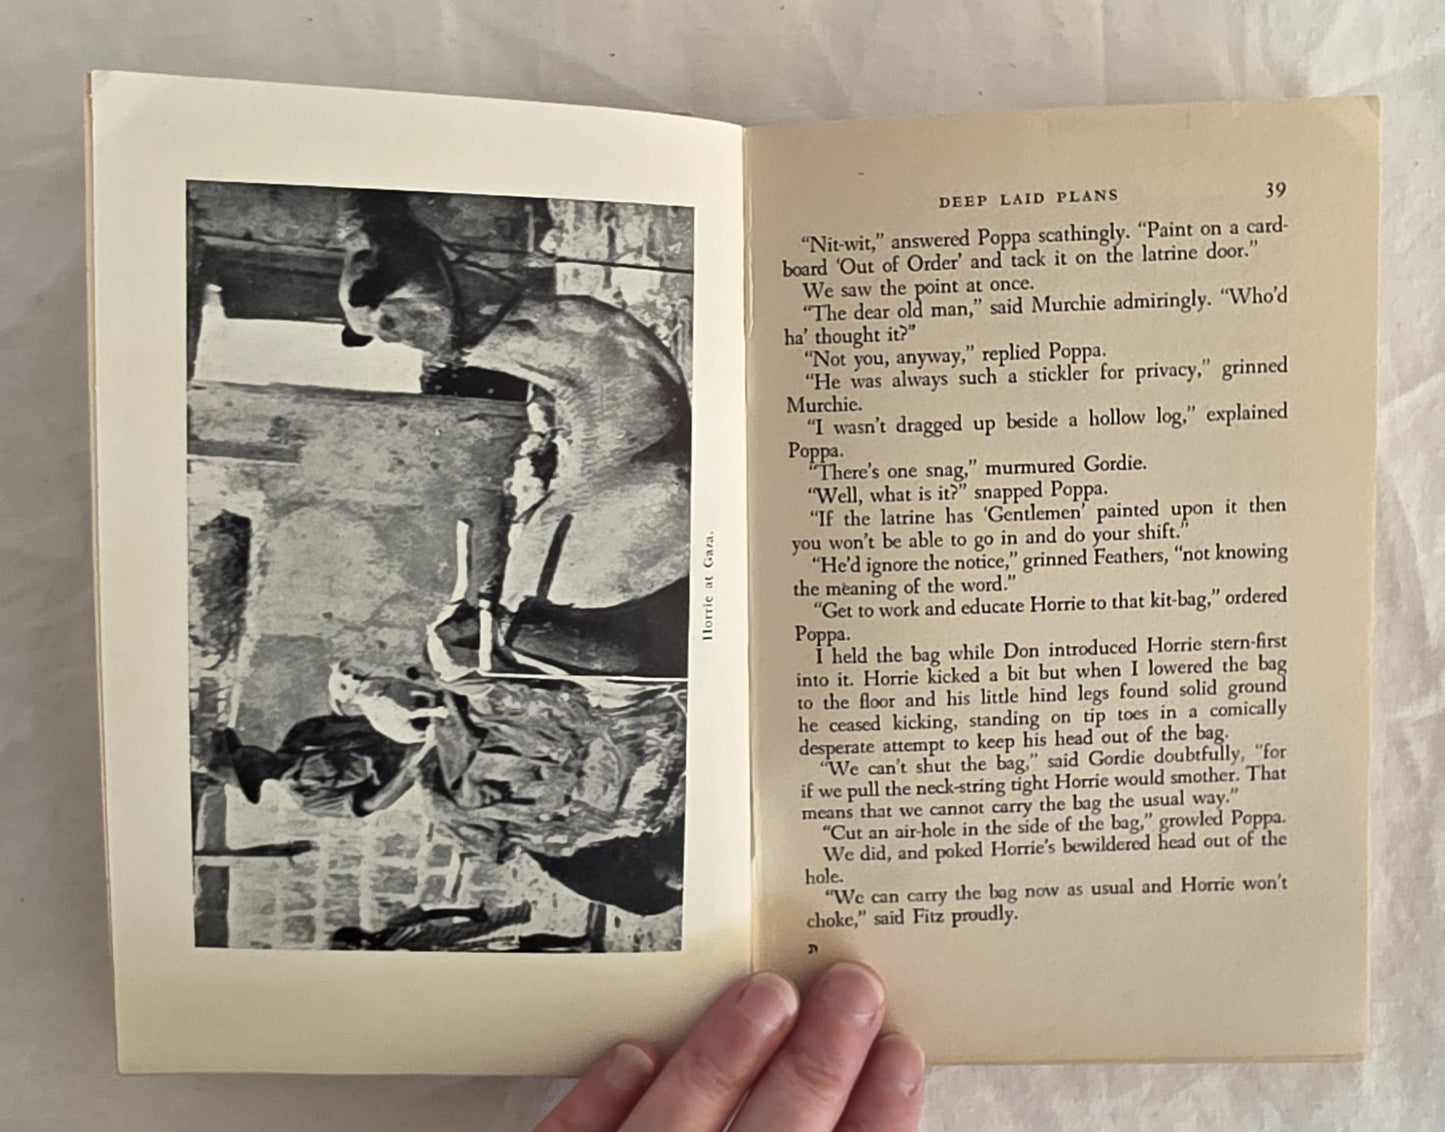 Horrie at Gaza.
DEEP LAID PLANS 39
“Nit-wit,” answered Poppa scathingly. “Paint on a card-
board ‘Out of Order’ and tack it on the latrine door.”
We saw the point at once.
“The dear old man,” said Murchie admiringly. “Who’d
ha’ thought it?”
“Not you, anyway,” replied Poppa.
“He was always such a stickler for privacy,” grinned
Murchie.
“I wasn’t dragged up beside a hollow log,” explained
Poppa.
“There’s one snag,” murmured Gordie.
“Well, what is it?” snapped Poppa.
“If the latrine has ‘Gentlemen’ painted upon it then
you won’t be able to go in and do your shift.”
“He’d ignore the notice,” grinned Feathers, “not knowing
the meaning of the word.”
“Get to work and educate Horrie to that kit-bag,” ordered
Poppa.
I held the bag while Don introduced Horrie stern-first
into it. Horrie kicked a bit but when I lowered the bag
to the floor and his little hind legs found solid ground
he ceased kicking, standing on tip toes in a comically
desperate attempt to keep his head out of the bag.
“We can’t shut the bag,” said Gordie doubtfully, “for
if we pull the neck-string tight Horrie would smother. That
means that we cannot carry the bag the usual way.”
“Cut an air-hole in the side of the bag,” growled Poppa.
We did, and poked Horrie’s bewildered head out of the
hole.
“We can carry the bag now as usual and Horrie won’t
choke,” said Fitz proudly.